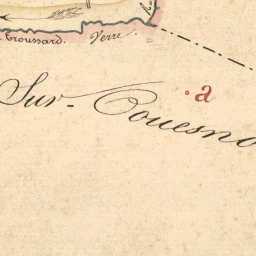 Troussard. Verre
a
Sur-Couesno